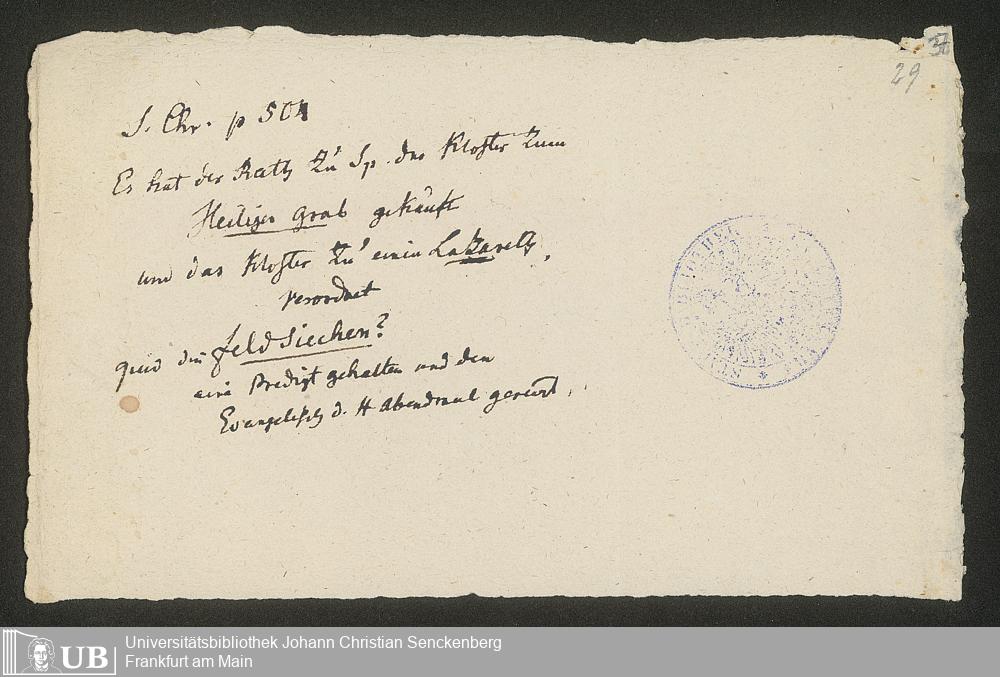 37
29
S. Chr. p 504
Es hat der Rath zu Sp. das Kloster zum
Heiligen grab gekauft
und das Kloster zu einem Lazareth,
verordnet
quid die feldsiechen?
eine Predigt gehalten und den
Evangelisch d. H Abendmal gereicht.
UB
Universitätsbibliothek Johann Christian Senckenberg
Frankfurt am Main